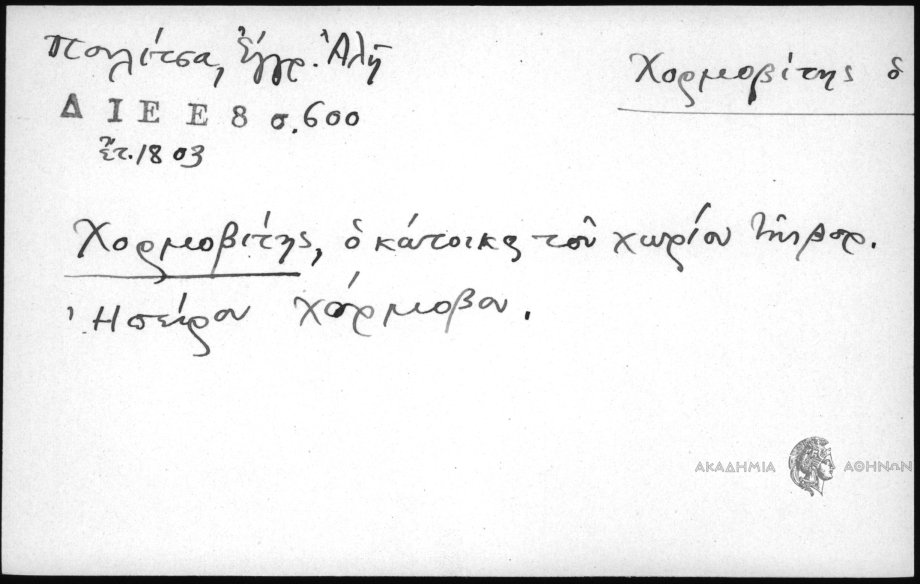 Πολίτσα, Ἔγγρ. Ἀλῆ
Χορμοβίτης ὁ
Δ Ι Ε Ε 8 σ. 600
ἔτ. 1803
Χορμοβίτης, ὁ κάτοικος τοῦ χωρίου τῆς βορ.
Ἠπείρου Χόρμοβον.
ΑΚΑΔΗΜΙΑ ΑΘΗΝΩΝ